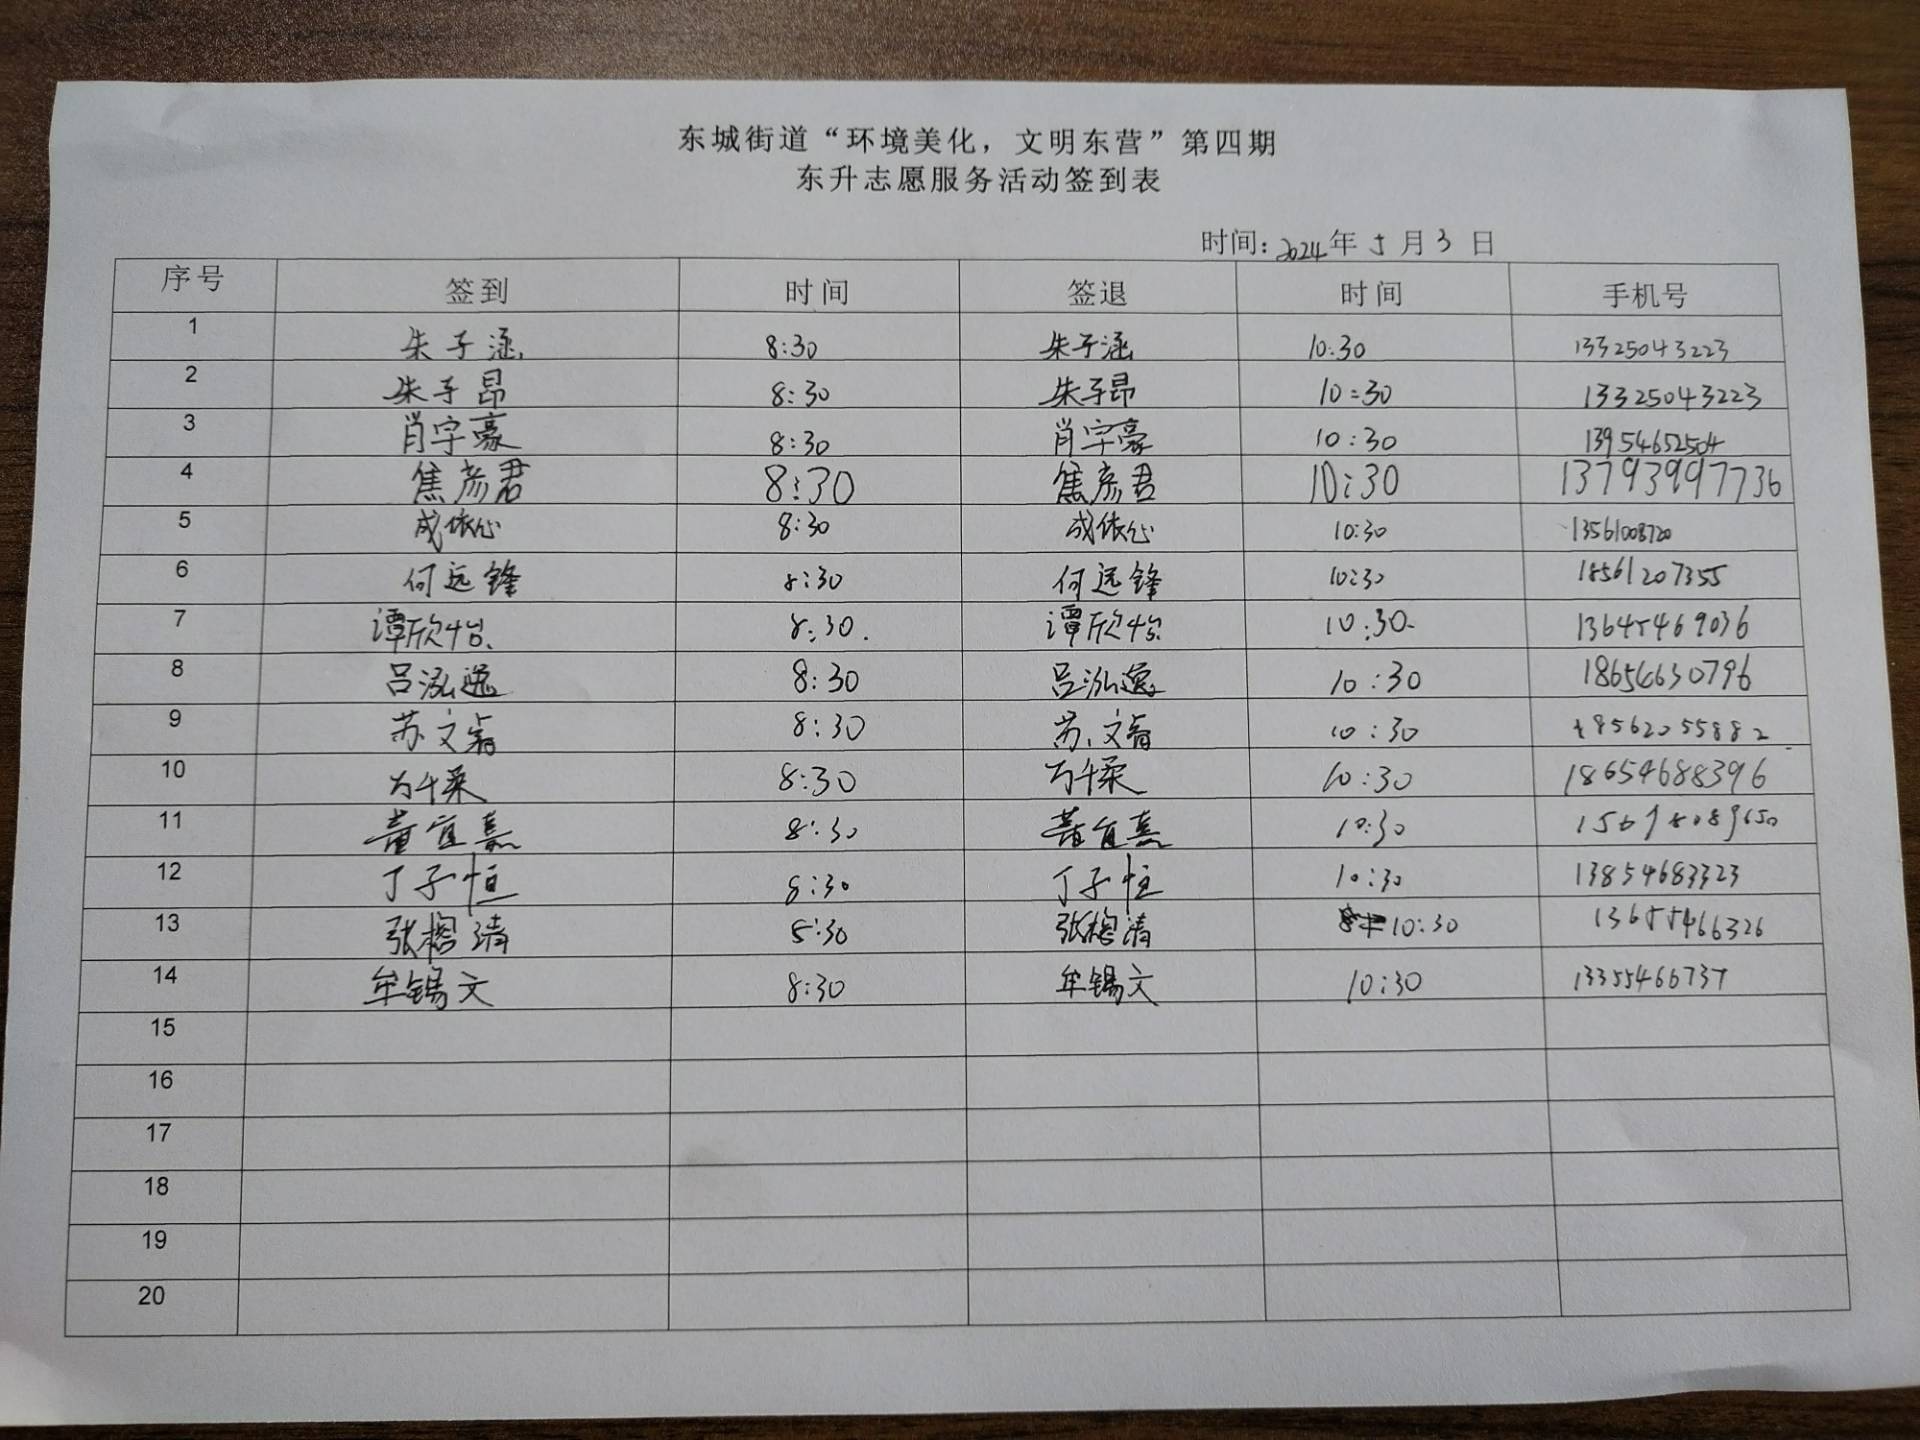 东城街道“环境美化，文明东营”第四期
东升志愿服务活动签到表
时间：2024年5月3日
序号 签到 时间 签退 时间 手机号
1 朱子涵 8:30 朱子涵 10:30 13325043223
2 朱子昂 8:30 朱子昂 10:30 13325043223
3 肖宇豪 8:30 肖宇豪 10:30 13954652504
4 焦彦君 8:30 焦彦君 10:30 13793997736
5 成依心 8:30 成依心 10:30 13561008720
6 何远锋 8:30 何远锋 10:30 18561207355
7 谭欣怡 8:30. 谭欣怡 10:30 13645469036
8 吕泓逸 8:30 吕泓逸 10:30 18654630796
9 苏文 8:30 苏文 10:30 18562055882
10 8:30 10:30 18654688396
11 董宜嘉 8:30 董宜嘉 10:30
12 丁子恒 8:30 丁子恒 10:30 13854683323
13 张榕清 8:30 张榕清 10:30 13655466326
14 牟锡文 8:30 牟锡文 10:30 13355466737
15
16
17
18
19
20